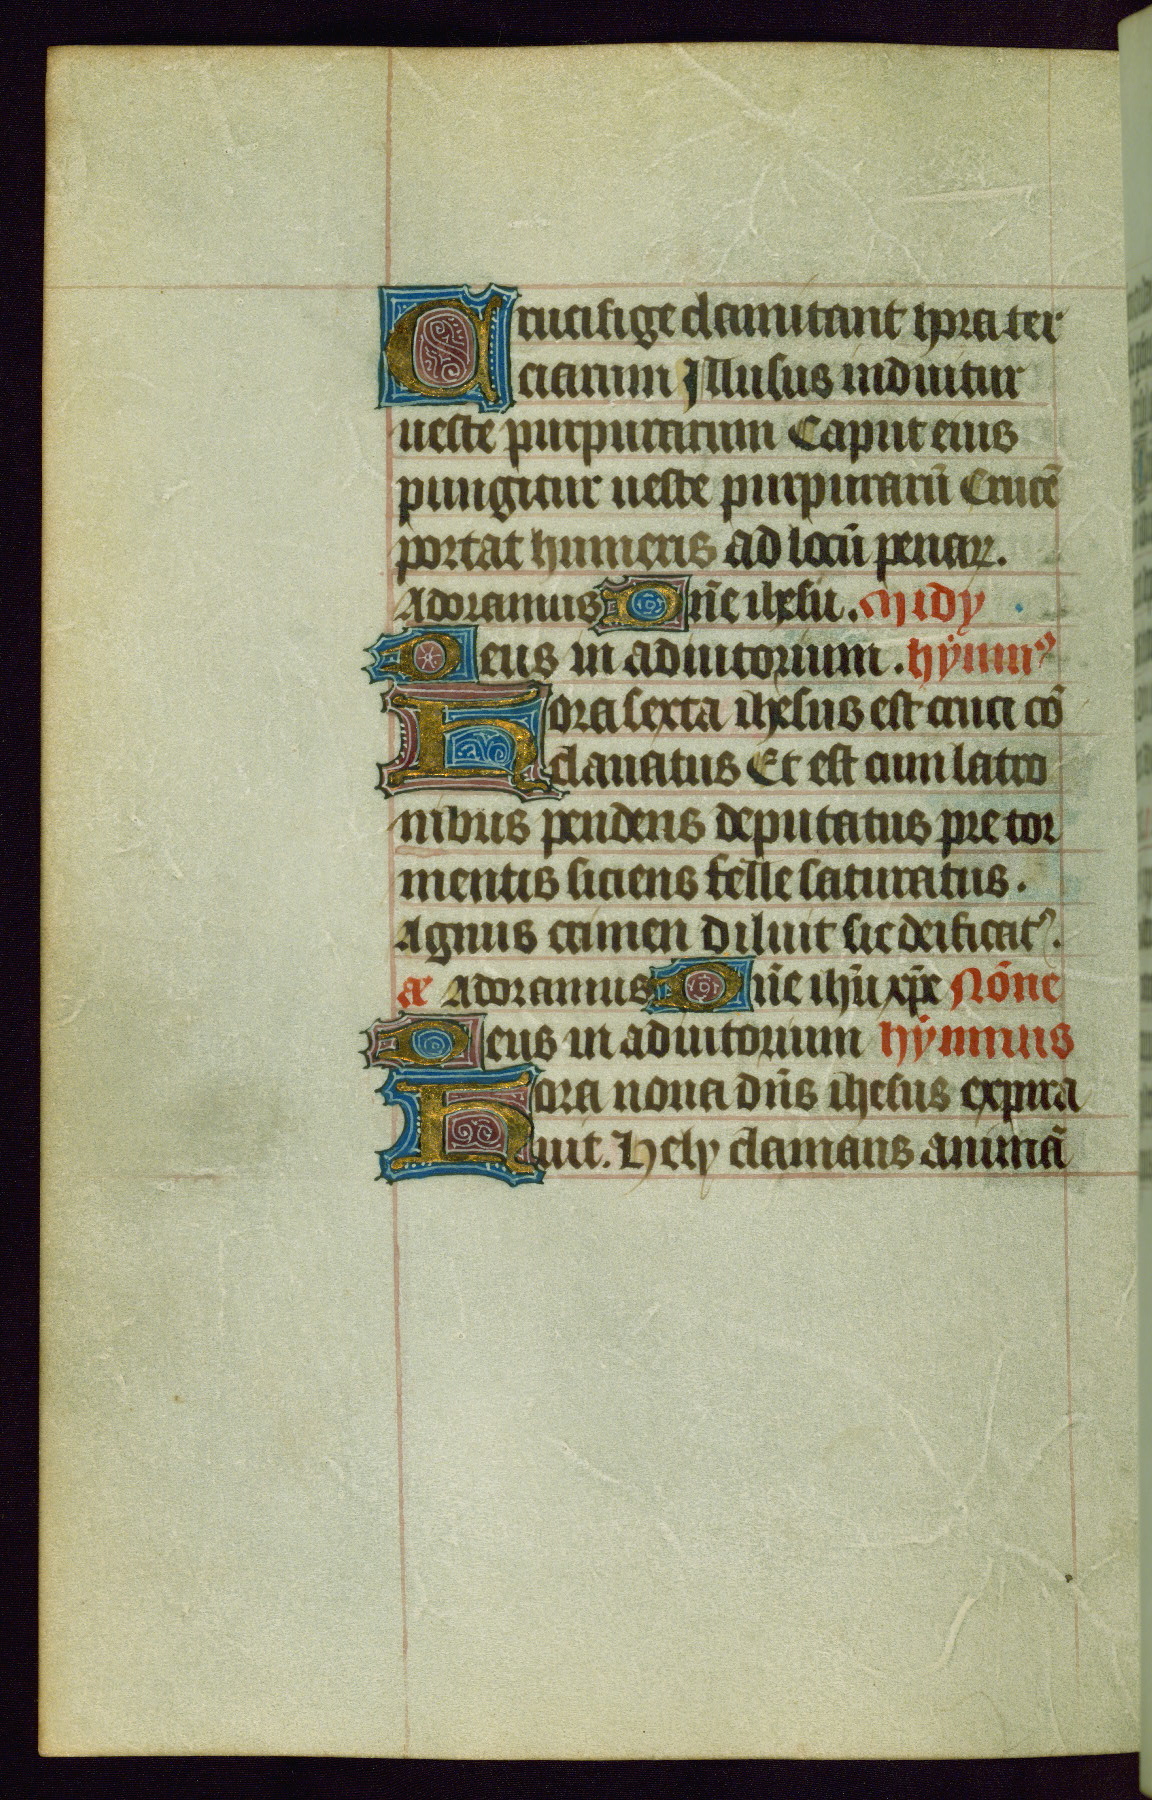 Crucifige clamitant hora ter
ciarum Illusus induitur
ueste purpurarum Caput eius
pungitur ueste purpurarū Crucē
portat humeris ad locū penaꝝ.
Adoramus Dn̄e ihesu. Midy
Deus in adiutorium. hȳmnꝰ
Hora sexta ihesus est cruci cō
clauatus Et est cum latro
nibus pendens deputatus pre tor
mentis siciens felle saturatus.
Agnus crimen diluit sic deificatꝰ.
æ Adoramus Dn̄e ihū xp̄e Nōne
Deus in adiutorium hȳmnus
Hora nona dn̄s ihesus expira
uit. Hely clamans animā